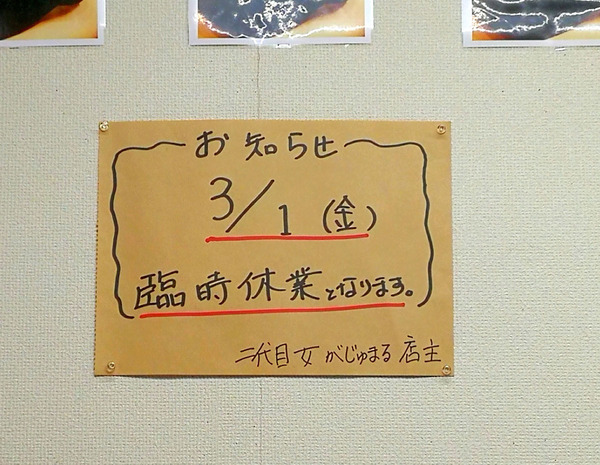 お知らせ
3/1(金)
臨時休業となります。
二代目女がじゅまる店主